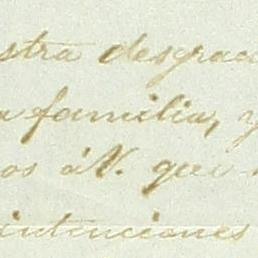 stra desgrac
a familia, y
os á V. que
intenciones